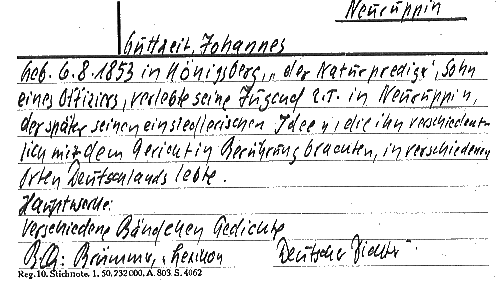 Neuruppin
Guttzeit, Johannes
Geb. 6.8.1853 in Königsberg, „der Naturpredige", Sohn
eines Offiziers, verlebte seine Jugend z.T. in Neuruppin,
der später seinen einsiedlerischen Ideen, die ihn verschiedent-
lich mit dem Gericht in Berührung brachten, in verschiedenen
Orten Deutschlands lebte.
Hauptwerke:
Verschiedene Bändchen Gedichte
Brümmer, Lexikon Deutscher Dichter
Reg. 10. Stichnote. 1. 50, 232 000, A. 803 S. 4062